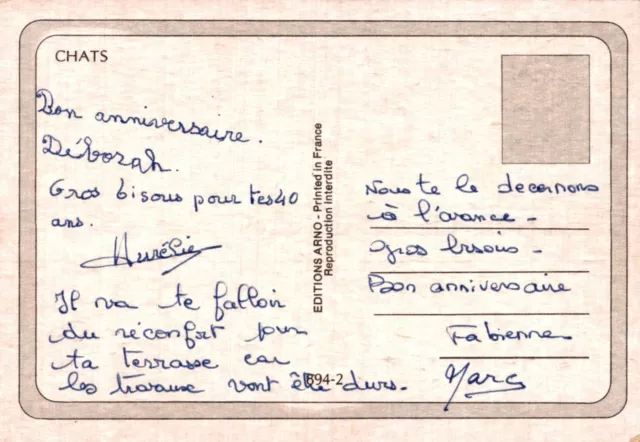 CHATS
Bon anniversaire.
Déborah.
Gros bisous pour tes 40
ans.
Aurélie
Il va te falloir
du réconfort pour
ta terrasse car
les travaux vont être durs.
894-2
EDITIONS ARNO - Printed in France
Reproduction Interdite
Nous te le decernons
à l'avance -
Gros bisous -
Bon anniversaire
Fabienne
Marc